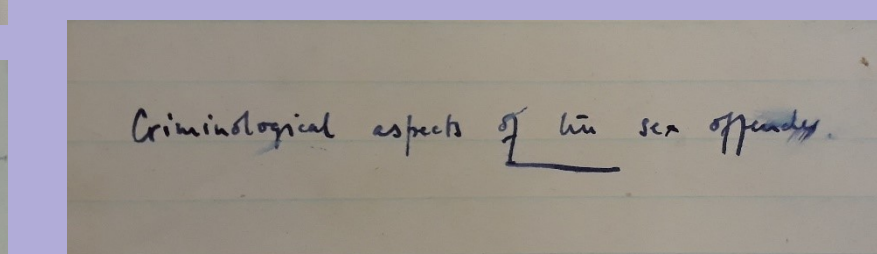 Criminological aspects of the sex offender.